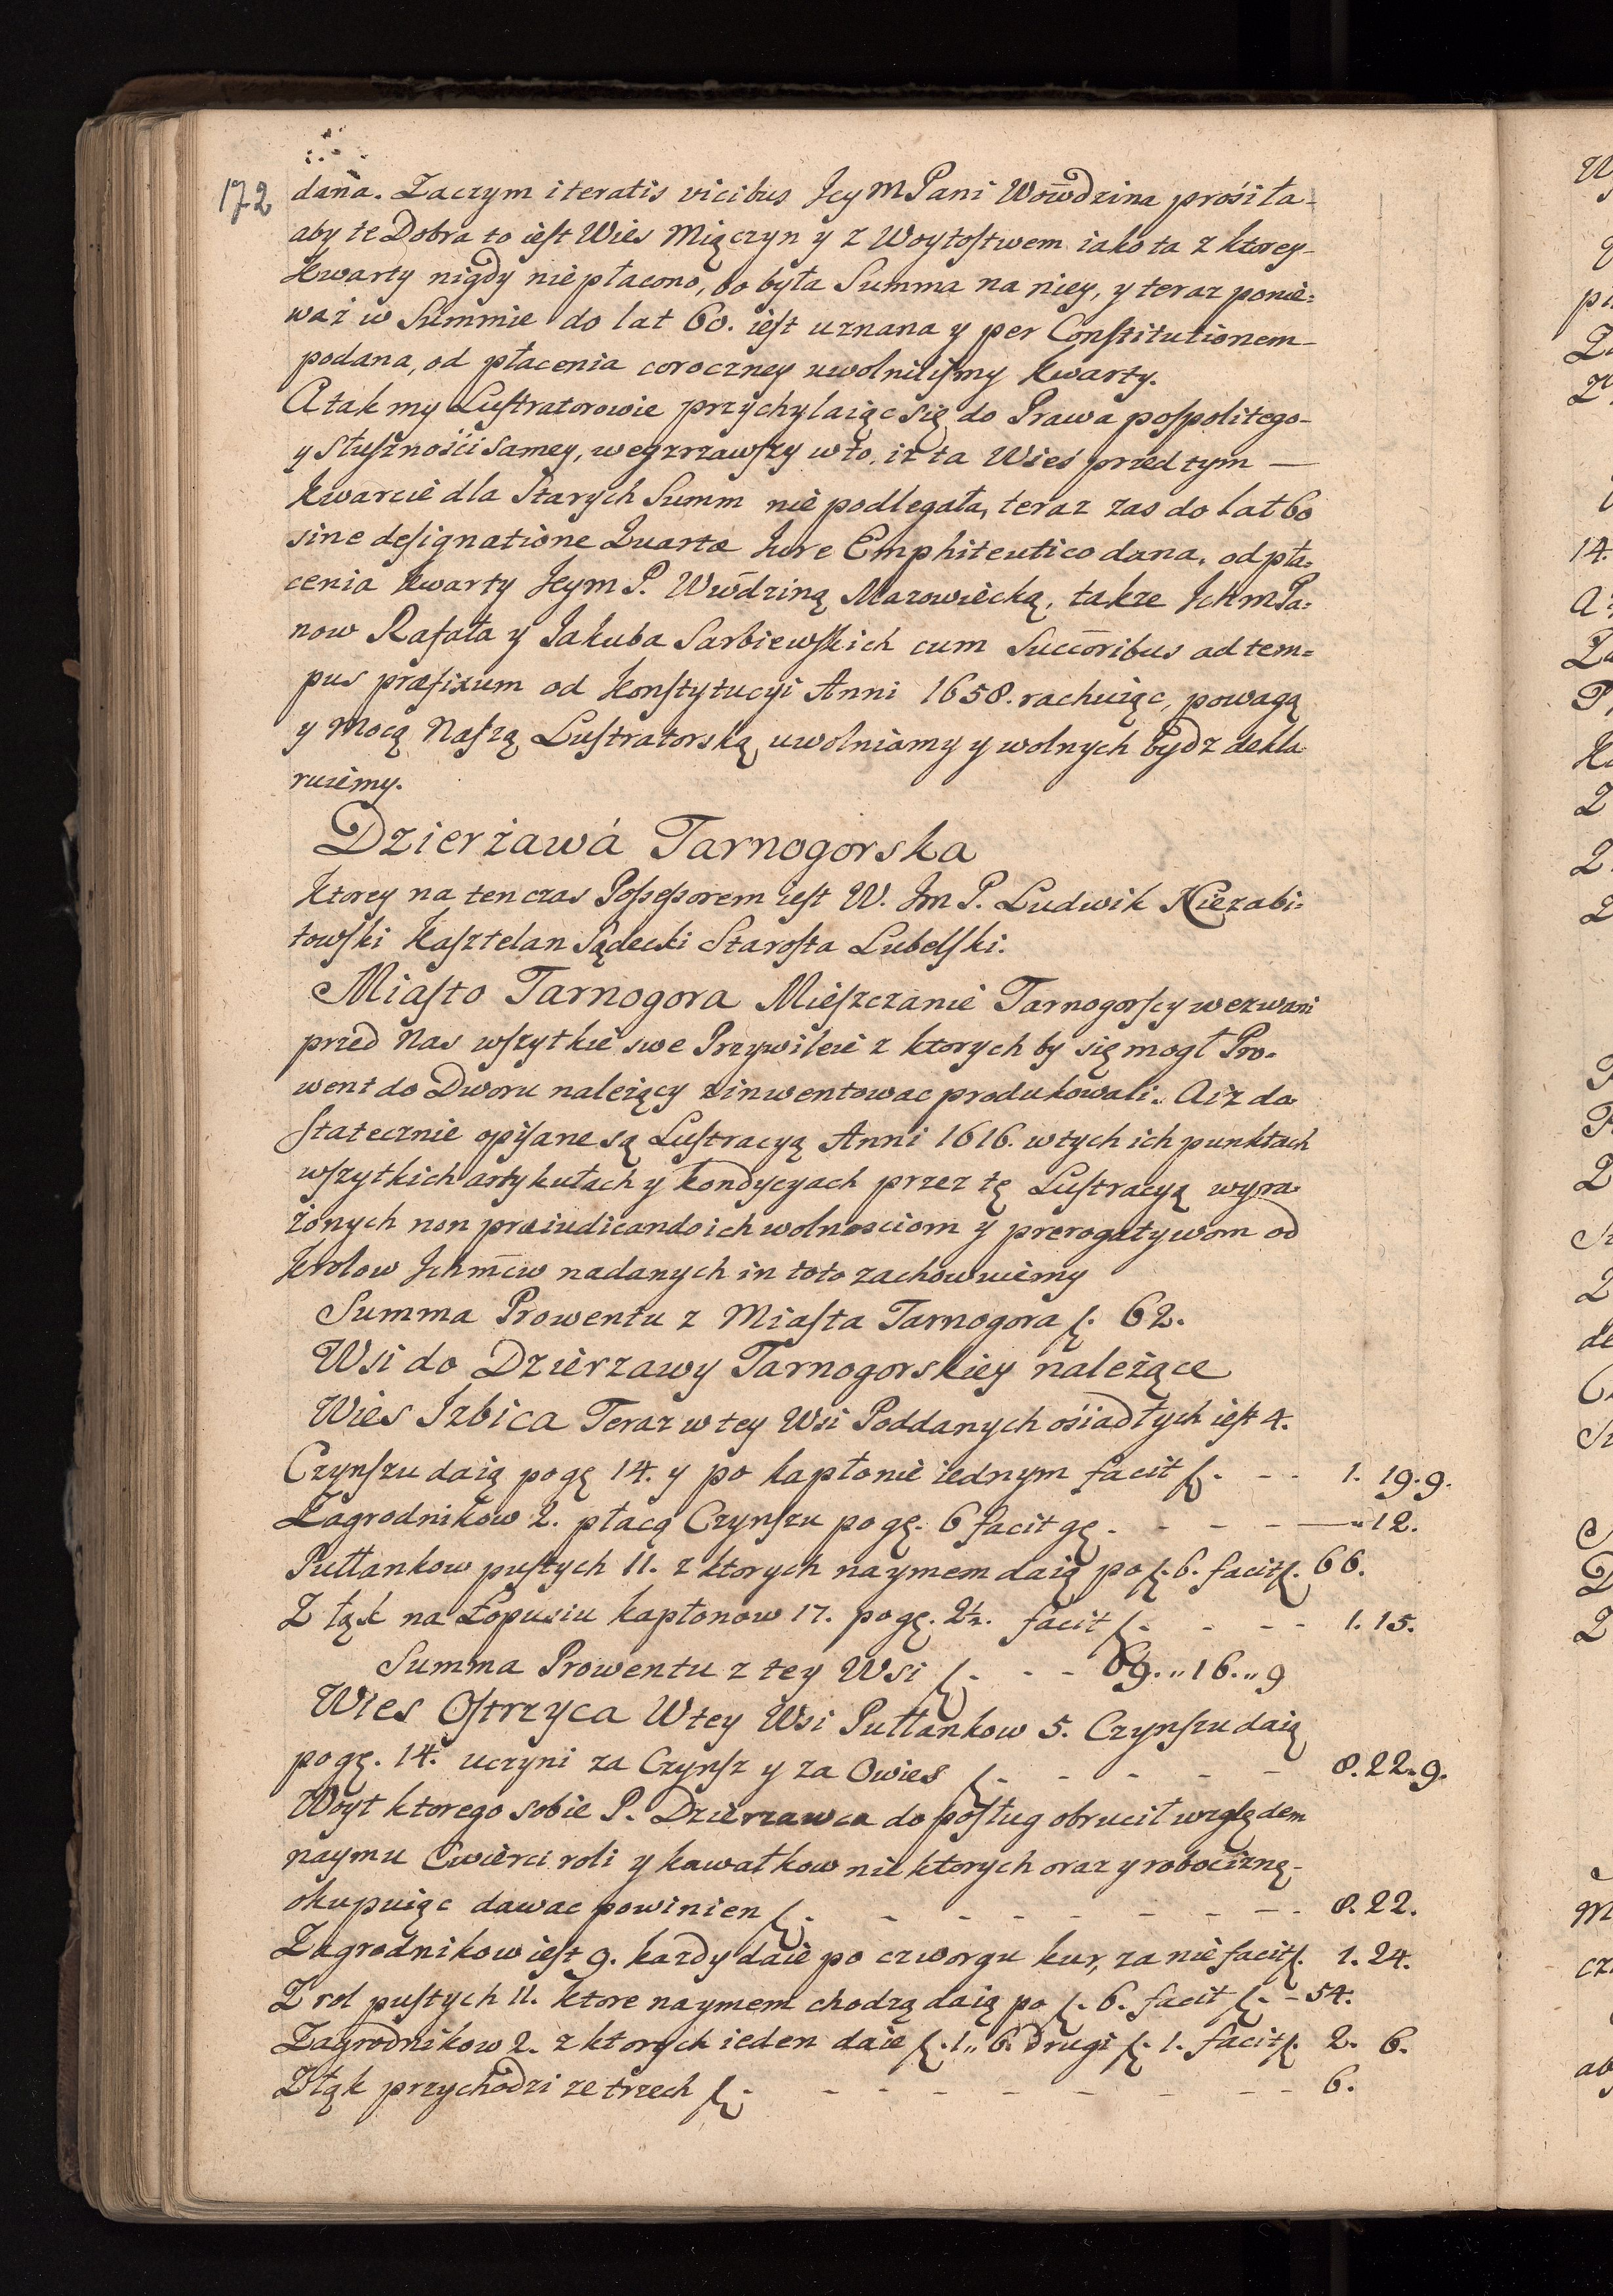 172
dana. Zaczym iteratis vicibus Jey M Pani Wowdzina prosiła
aby te Dobra to iest Wies Miączyn y z Woytostwem iako ta z ktorey
kwarty nigdy nie płacono, bo była Summa na niey, y teraz ponie=
waż w Summie do lat 60. iest uznana y per Constitutionem
podana, od płacenia coroczney uwolnilismy kwarty.
A tak my Lustratorowie przychylaiąc się do Prawa pospolitego
y Słuszności samey, weyzrzawszy w to, iż ta Wieś przed tym —
kwarcie dla Starych Summ nie podlegała, teraz zas do lat 60
sine designatione Quartæ Jure Emphiteutico dana, od pła=
cenia kwarty Jeym P. Wwdziną Mazowiecką, takze Jchm Pa=
now Rafała y Jakuba Sarbiewskich cum Succoribus ad tem=
pus præfixum od Konstytucyi Anni 1658. rachuiąc, powagą
y Mocą Naszą Lustratorską uwolniamy y wolnych bydz dekla
ruiemy.
Dzierżawá Tarnogorska
Ktorey na ten czas Possessorem iest W. Jm P. Ludwik Niezabi=
towski Kasztelan Sądecki Starosta Lubelski.
Miasto Tarnogora Mieszczanie Tarnogorscy wezwani
przed Nas wszytkie swe Przywileie z ktorych by się mogł Pro=
went do Dworu należący zinwentowac produkowali. A iz do
statecznie opisane są Lustracyą Anni 1616. w tych ich punktach
wszytkich artykułach y kondycyach przez tę Lustracyą wyra
żonych non præiudicando ich wolnosciom y prerogatywom od
Krolow Jchmciw nadanych in toto zachowuiemy
Summa Prowentu z Miasta Tarnogora f. 62.
Wsi do Dzierzawy Tarnogorskiey należące
Wies Izbica Teraz w tey Wsi Poddanych ośiadłych iest 4.
Czynszu daią po gę 14. y po kapłonie iednym facit f. - - 1. 19. 9.
Zagrodnikow 2. płacą Czynszu po gę. 6 facit gę. - - - — " 12.
Pułłankow pustych 11. z ktorych naymem daią po f. 6. facit f. 66.
Z łąk na Łopusiu kapłonow 17. po gę. 2½. facit f. - - - 1. 15.
Summa Prowentu z tey Wsi f. - - - 69. " 16. " 9
Wies Ostrzyca W tey Wsi Pułłankow 5. Czynszu daią
po gę. 14. uczyni za Czynsz y za Owies f. - - - - - 8. 22. 9.
Woyt ktorego sobie P. Dzierzawca do posług obrucił względem
naymu Cwierci roli y kawałkow niektorych oraz y robociznę
okupuiąc dawac powinien f. - - - - - - - - 8. 22.
Zagrodnikow iest 9. kazdy daie po czworgu kur, za nie facit f. 1. 24.
Z rol pustych 11. ktore naymem chodzą daią po f. 6. facit f. - 54.
Zagrodnikow 2. z ktorych ieden daie f. 1 " 6. drugi f. 1. facit f. 2. 6.
Z łąk przychodzi ze trzech f. - - - - - - - - 6.